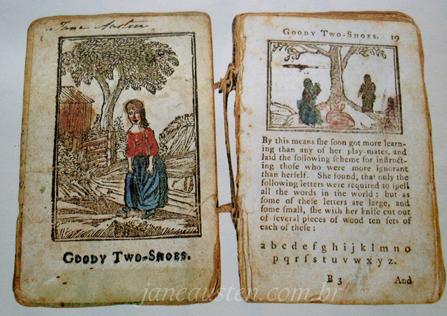 Jane Austen
GOODY TWO-SHOES.
GOODY TWO-SHOES. 19
By this means ſhe ſoon got more learn-
ing than any of her play-mates, and
laid the following ſcheme for inſtruct-
ing thoſe who were more ignorant
than herſelf. She found, that only the
following letters were required to ſpell
all the words in the world: but as
ſome of theſe letters are large, and
ſome ſmall, ſhe with her knife cut out
of ſeveral pieces of wood ten ſets of
each of theſe:
a b c d e f g h i j k l m n o
p q r ſ s t u v w x y z.
B 3 And
janeausten.com.br